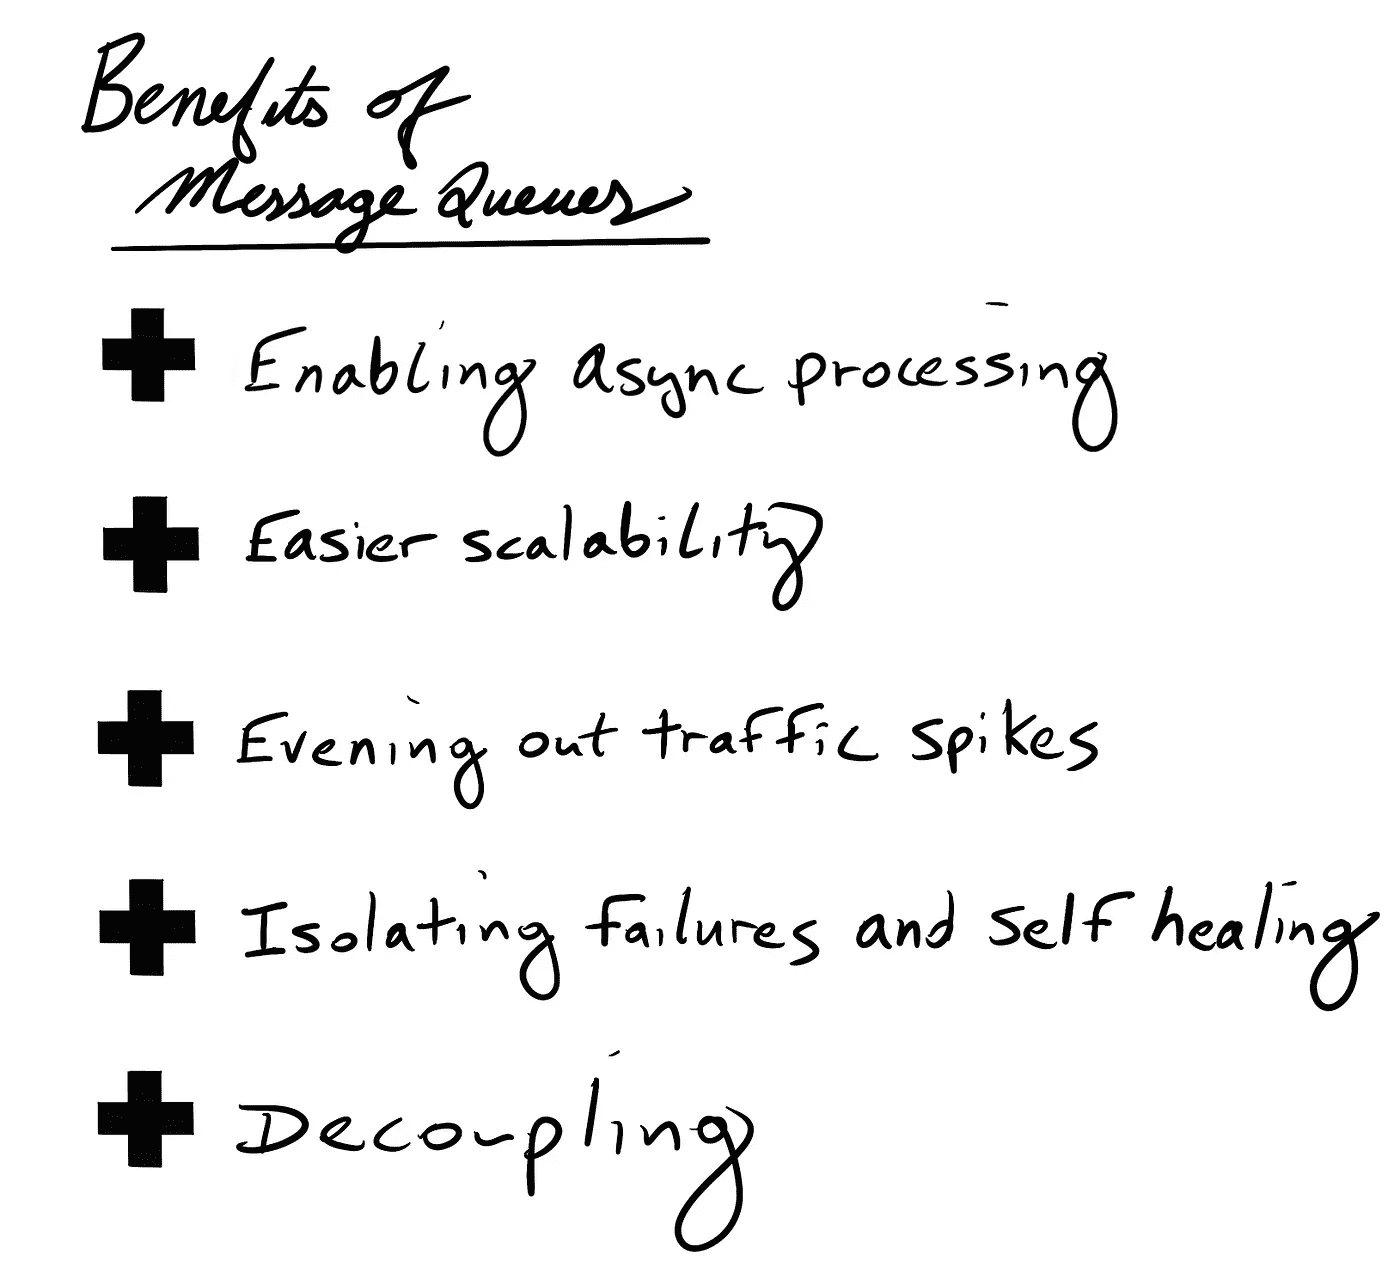 Benefits of
Message Queues
Enabling async processing
Easier scalability
Evening out traffic spikes
Isolating failures and self healing
Decoupling